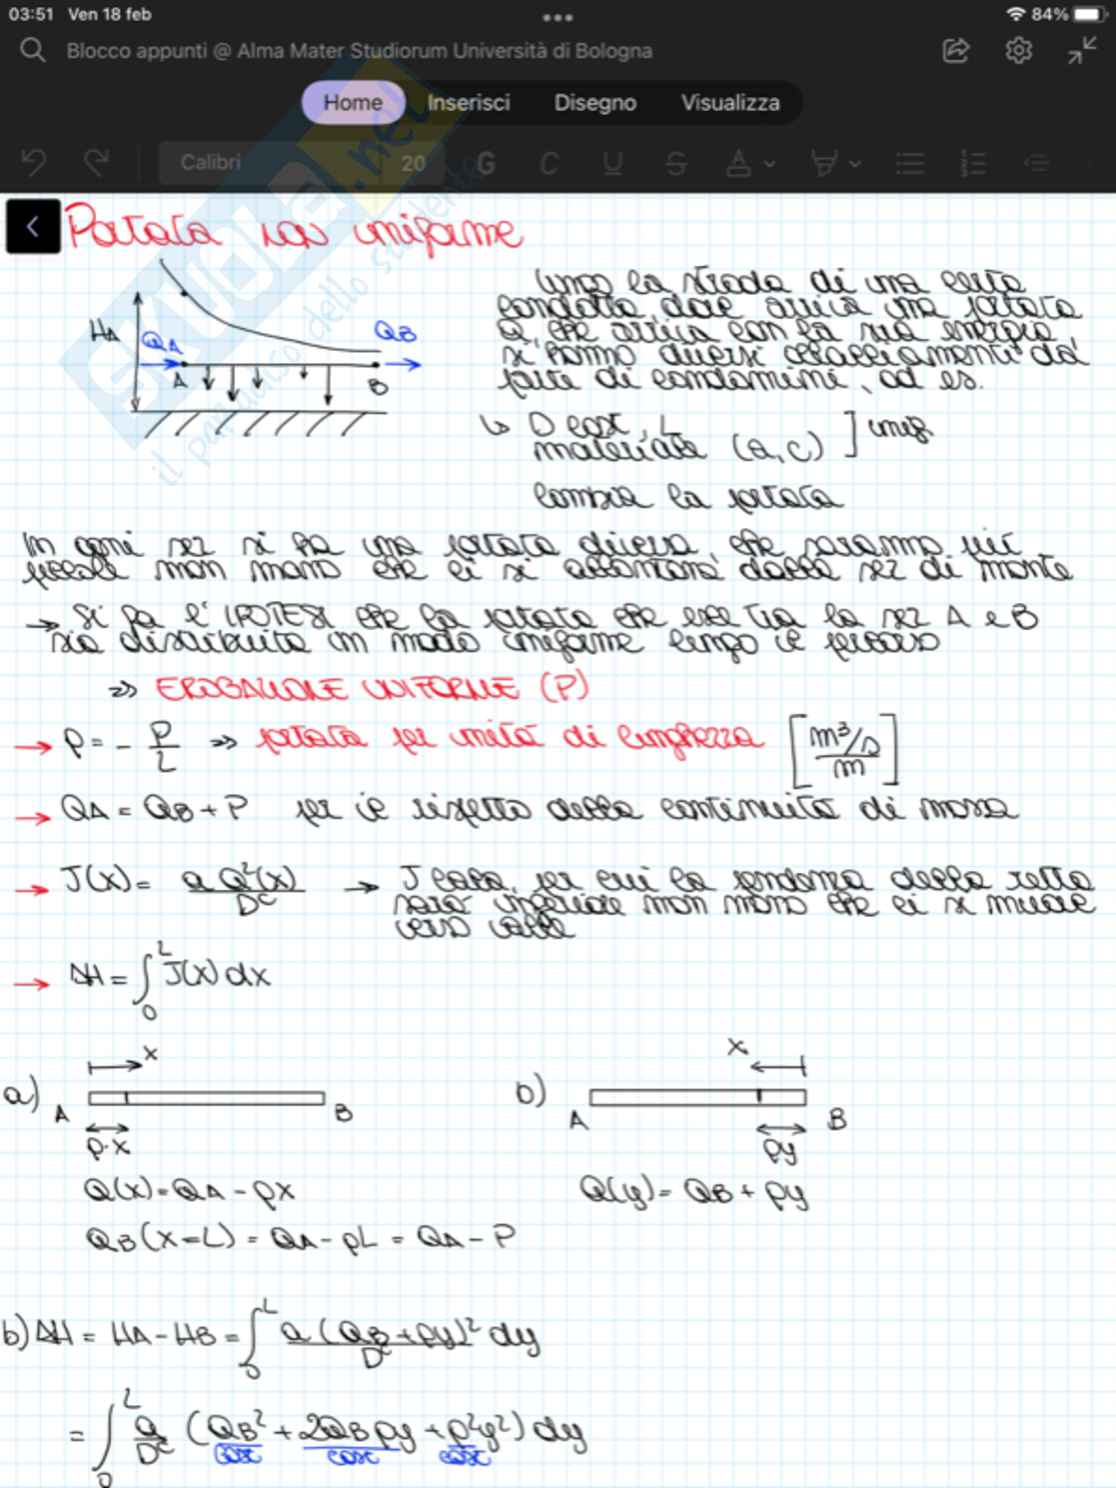 03:51 Ven 18 feb
84%
Blocco appunti @ Alma Mater Studiorum Università di Bologna
Home Inserisci Disegno Visualizza
Calibri 20 G C U S A
Portata non uniforme
HA QA QB
A B
lungo la strada di una certa
condotta, dove arriva una portata
Q, che arriva con la sua energia,
si hanno diversi allacciamenti da
parte di condomini, ad es.
↳ D cost, L
materiale (a, c) ] unif.
cambia la portata
In ogni sez si ha una portata diversa, che saranno più
piccole man mano che ci si allontana dalla sez di monte
→ Si fa l'IPOTESI che la portata che esce tra la sez A e B
sia distribuita in modo uniforme lungo il percorso
=> EROGAZIONE UNIFORME (P)
→ p = - P/L => portata per unità di lunghezza [m³/s / m]
→ QA = QB + P per il rispetto della continuità di massa
→ J(x) = a Q²(x) / Dᶜ → J cala, per cui la pendenza della retta
sarà inferiore man mano che ci si muove
verso valle
→ ΔH = ∫₀ᴸ J(x) dx
a) A x B
p·x
b) A x B
py
Q(x) = QA - px
Q(y) = QB + py
QB (x=L) = QA - pL = QA - P
b) ΔH = HA - HB = ∫₀ᴸ a (QB + py)² / Dᶜ dy
= ∫₀ᴸ a/Dᶜ (QB² + 2QB py + p²y²) dy
cost cost cost
SKUOLA.net
il paradiso dello studente